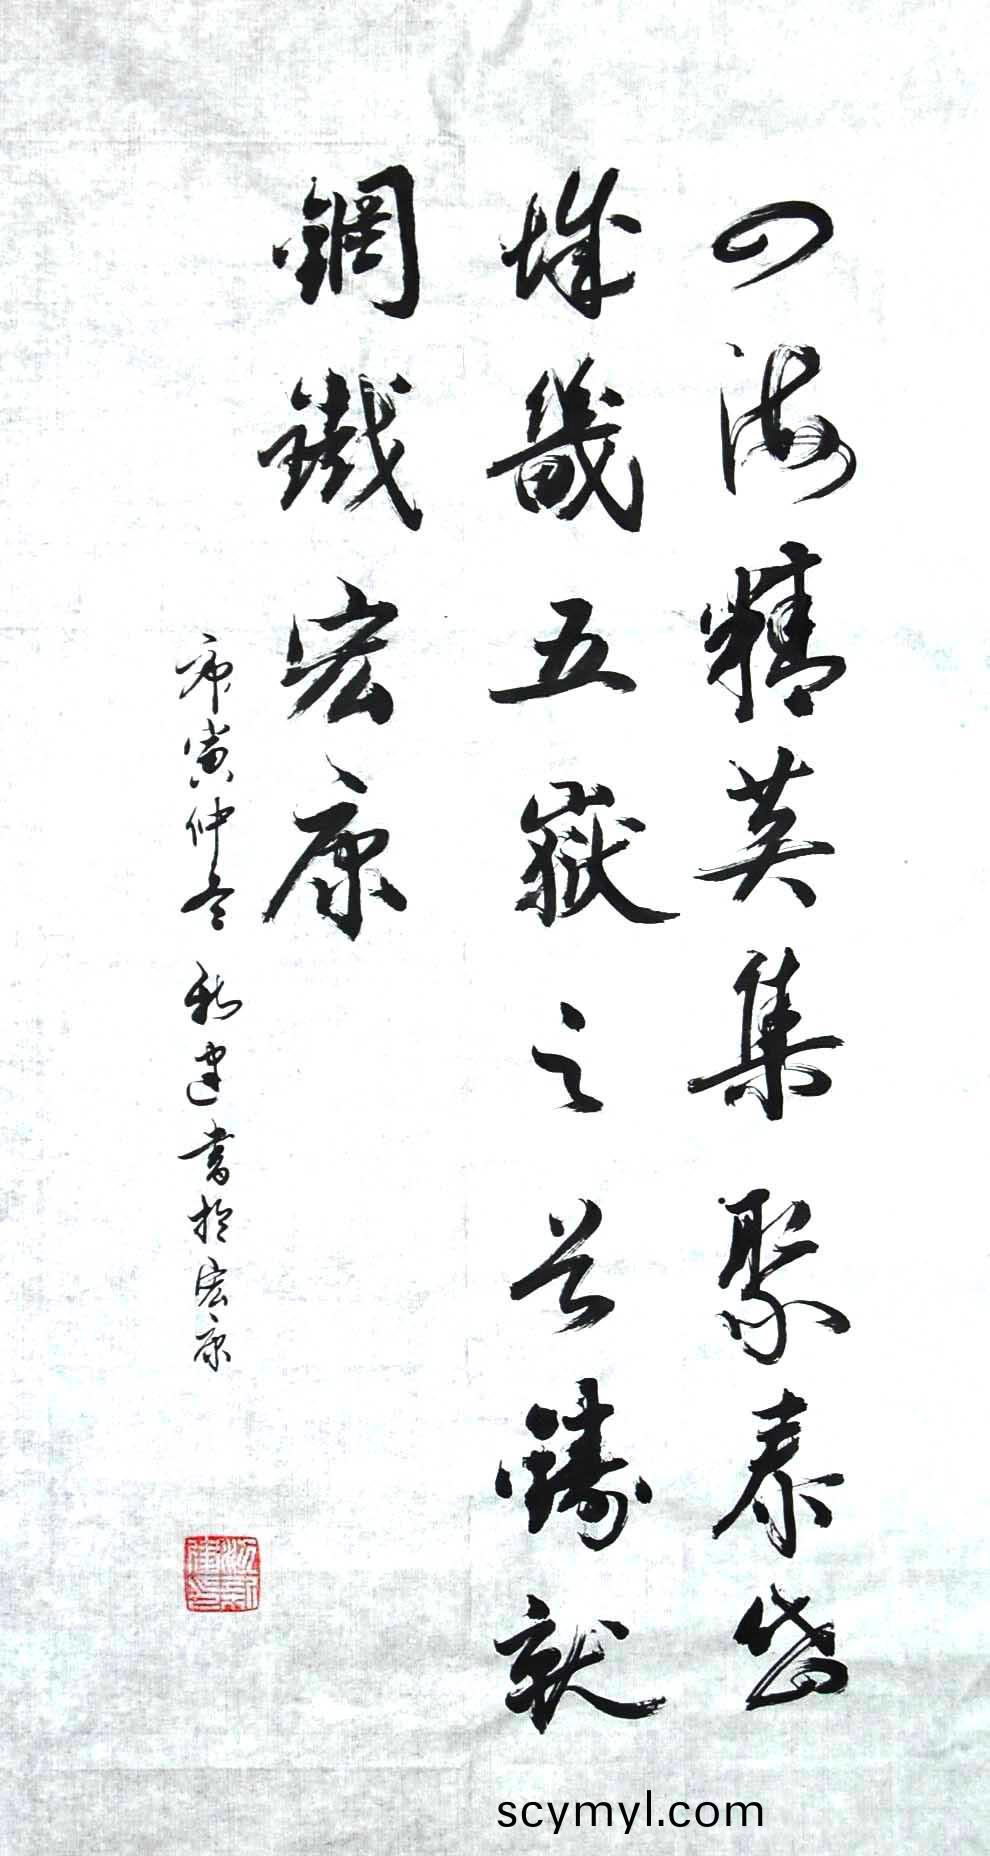 四海精英集聚泰岱
城畿五嶽之首鑄就
鋼鐵宏康
庚寅仲冬新建書於宏康
scymyl.com